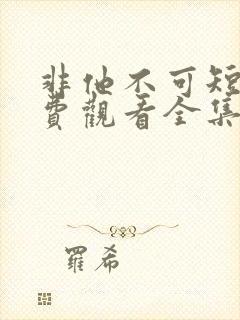 非他不可短
費觀看全集
羅希